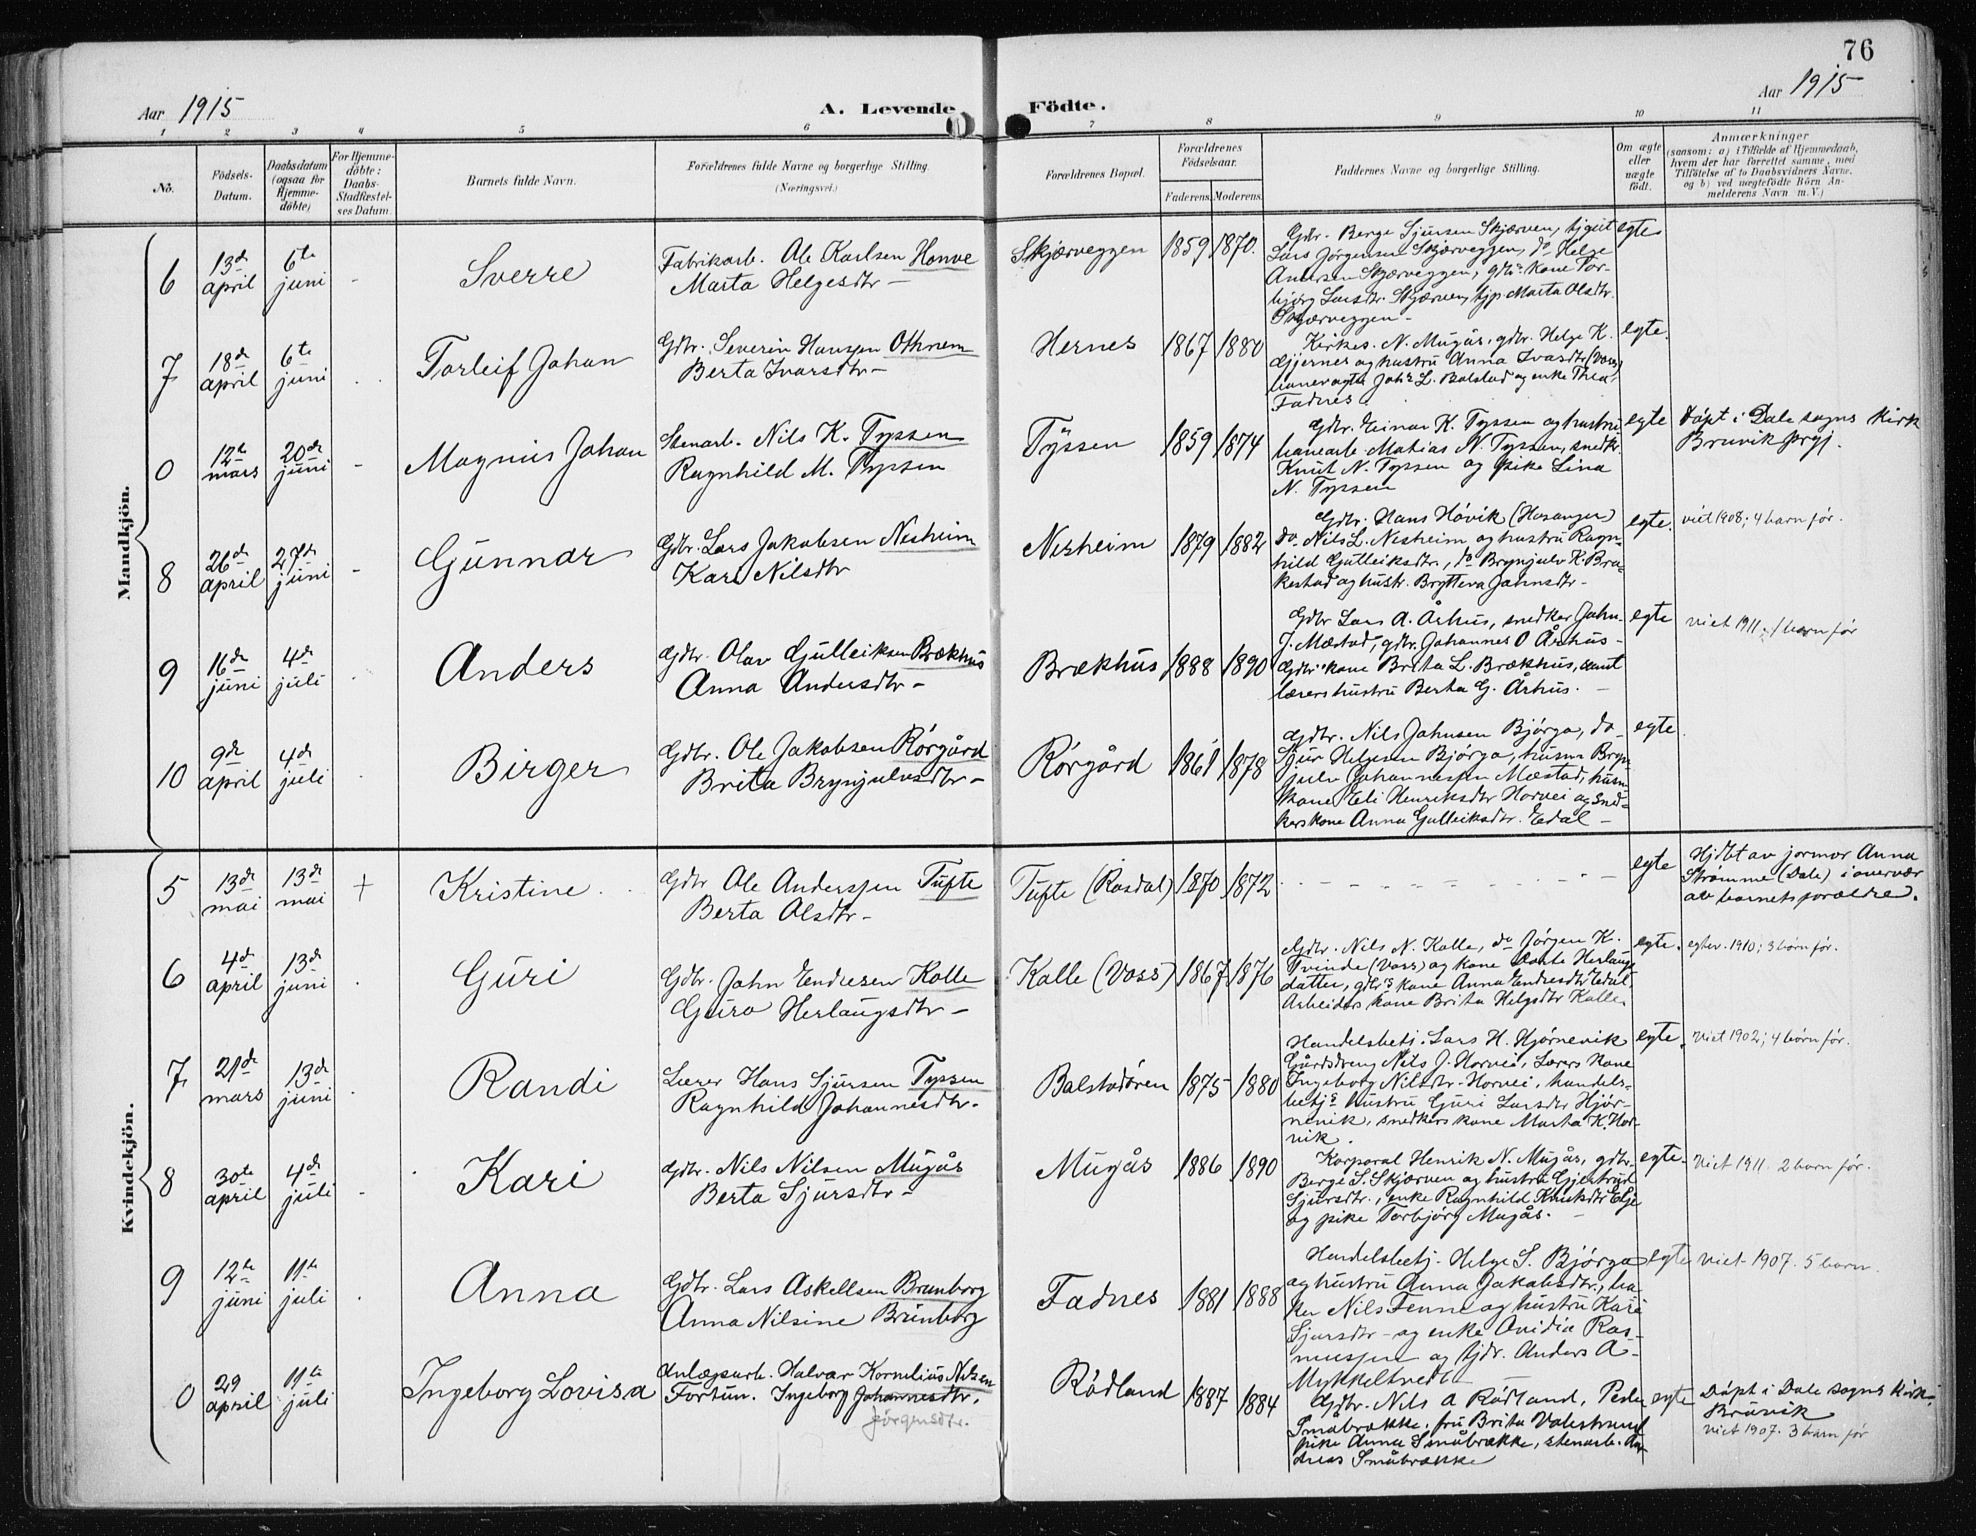 76
Aar 1915
A. Levende Födte.
Aar 1915
1 2 3 4 5 6 7 8 9 10 11
No.
Födsels-
Datum.
Daabsdatum
(ogsaa for
Hjemme-
döbte)
For Hjemme-
döbte:
Daabs-
Stadfæstel-
ses Datum.
Barnets fulde Navn.
Forældrenes fulde Navne og borgerlige Stilling.
(Næringsvei.)
Forældrenes Bopæl.
Forældrenes
Födselsaar.
Faderens. Moderens.
Faddernes Navne og borgerlige Stilling.
Om ægte
eller
uægte
födt.
Anmærkninger
(saasom: a) i Tilfælde af Hjemmedaab,
hvem der har forrettet samme, med
Tilföielse af to Daabsvidners Navne,
og b) ved uægtefödte Börn An-
melderens Navn m. V.)
Mandkjön.
6 13de april 6te juni - Sverre
Fabrikarb. Ole Karlsen Honve
Marta Helgesdtr -
Skjærveggen 1859 1870.
Gdbr. Berge Sjursen Skjærven, tjgut
Lars Jørgensen Skjærveggen, do Helge
Andersen Skjærveggen, gdbr kone Tor-
bjørg Larsdtr. Skjærven, tjp Marta Olsdtr.
Skjærveggen -
egte
7 18de april 6te juni Torleif Johan
Gdbr. Severin Hansen Othnem
Berta Ivarsdtr -
Hernes 1867 1880
Kirkes. N. Mugås, gdbr. Helge K.
Gjernes og hustru Anna Ivasdtr (Voss)
L. Bolstad og enke Thea
Fadnes
egte.
0 12te mars 20de juni - Magnus Johan
Stenarb. Nils K. Tyssen
Ragnhild M. Tyssen
Tyssen 1859 1874
Gdbr. Einar K. Tyssen og hustru
banearb Mathias N. Tyssen, snedkr.
Knut N. Tyssen og pike Lina
N. Tyssen
egte
Døpt i Dale sogns kirk
Bruvik prgj.
8 26de april 27de juni - Gunnar
Gdbr. Lars Jakobsen Nesheim
Kari Nilsdtr
Nesheim 1879 1882
Gdbr. Hans Håvik (Hosanger)
do. Nils L. Nesheim og hustru Ragn-
hild Gulleiksdtr., do Brynjulv K. Bra-
kestad og hustr. Brytteva Jahnsdtr -
egte.
viet 1908; 4 barn før.
9 16de juni 4de juli Anders
Gdbr. Olav Gulleiksen Brækhus
Anna Andersdtr -
Brækhus 1888 1890
Gdbr Lars A. Århus, snedker Jahn-
J. Mæstad, gdbr. Johannes O Århus -
Gdbr kone Brita L. Brækhus, samt
lærers hustru Berta G. Århus. -
egte
viet 1911. 1 barn før
10 9de april 4de juli Birger
Gdbr. Ole Jakobsen Rørgård
Brita Brynjulvsdtr -
Rørgård 1861 1878
Gdbr. Nils Jahnsen Bjørgo, do
Sjur Helgesen Bjørgo, husm Bryn-
julv Johannessen Mæstad, husm
kone Eli Henriksdtr Horvei og sned-
kers kone Anna Gulleiksdtr. Edal -
egte
Kvindekjön.
5 13de mai 13de mai + Kristine
Gdbr Ole Anderssen Tufte
Berta Olsdtr -
Tufte (Rasdal) 1870 1872
egte
Hjdbt av jormor Anna
Strømme (Dale) i overvær
av barnets forældre.
6 4de april 13de juni Guri
Gdbr. John Endresen Kolle
Guro Herlaugsdtr -
Kalle (Voss) 1867 1876
Gdbr. Nils N. Kolle, do Jørgen K.
Tvinde (Voss) og kone Dorte Herlaugs
datter, gdbrs kone Anna Endresdtr Edal
Arbeiders kone Brita Helgsdtr Kolle.
egte.
egtev. 1910; 3 børn før.
7 21de mars 13de juni Randi
Lærer Hans Sjursen Tyssen
Ragnhild Johannesdtr.
Bolstadøren 1875 1880
Handelsbetj. Lars H. Hjørnevik
Gårdsdreng Nils J. Horvei, Lærers kone
Ingeborg Nilsdtr Horvei, handels-
betjs hustru Guri Larsdtr Hjør-
nevik, snedkers kone Marta K. Hor-
vik.
egte.
Viet 1902; 4 børn før.
8 30te april 4de juli - Kari
Gdbr. Nils Nilsen Mugås
Berta Sjursdtr -
Mugås 1886 1890
Korporal Henrik N. Mugås, gdbr.
Berge S. Skjærven og hustru Gjertrud
Sjursdtr., enke Ragnhild Knutsdtr
og pike Torbjørg Mugås. -
egte.
Viet 1911. 2 barn før.
9 12te juni 11te juli Anna
Gdbr. Lars Askellsen Brunborg
Anna Nilsine Brunborg
Fadnes 1881 1888
Handelsbetj. Helge S. Bjørgo
og hustru Anna Jakobsdtr., ba-
ker Nils Fenne og hustru Kari
Sjursdtr - og enke Ovidia Ras-
mussen og tjdr. Anders A-
Mykkeltvedt -
egte
viet 1907. 5 barn.
0 29 april 11te juli Ingeborg Lovisa
Anlægsarb. Halvar Kornelius Nilsen
Fortun. Ingeborg Johannesdtr.
Jørgensdtr.
Rødland 1887 1884
Gdbr. Nils A Rødland, Peder
Småbrække, fru Brita Valestrand
pike Anna Småbrække, stenarb. An-
dreas Småbrække
egte
Døpt i Dale sogns kirk.
Bruvik
viet 1907. 3 barn før